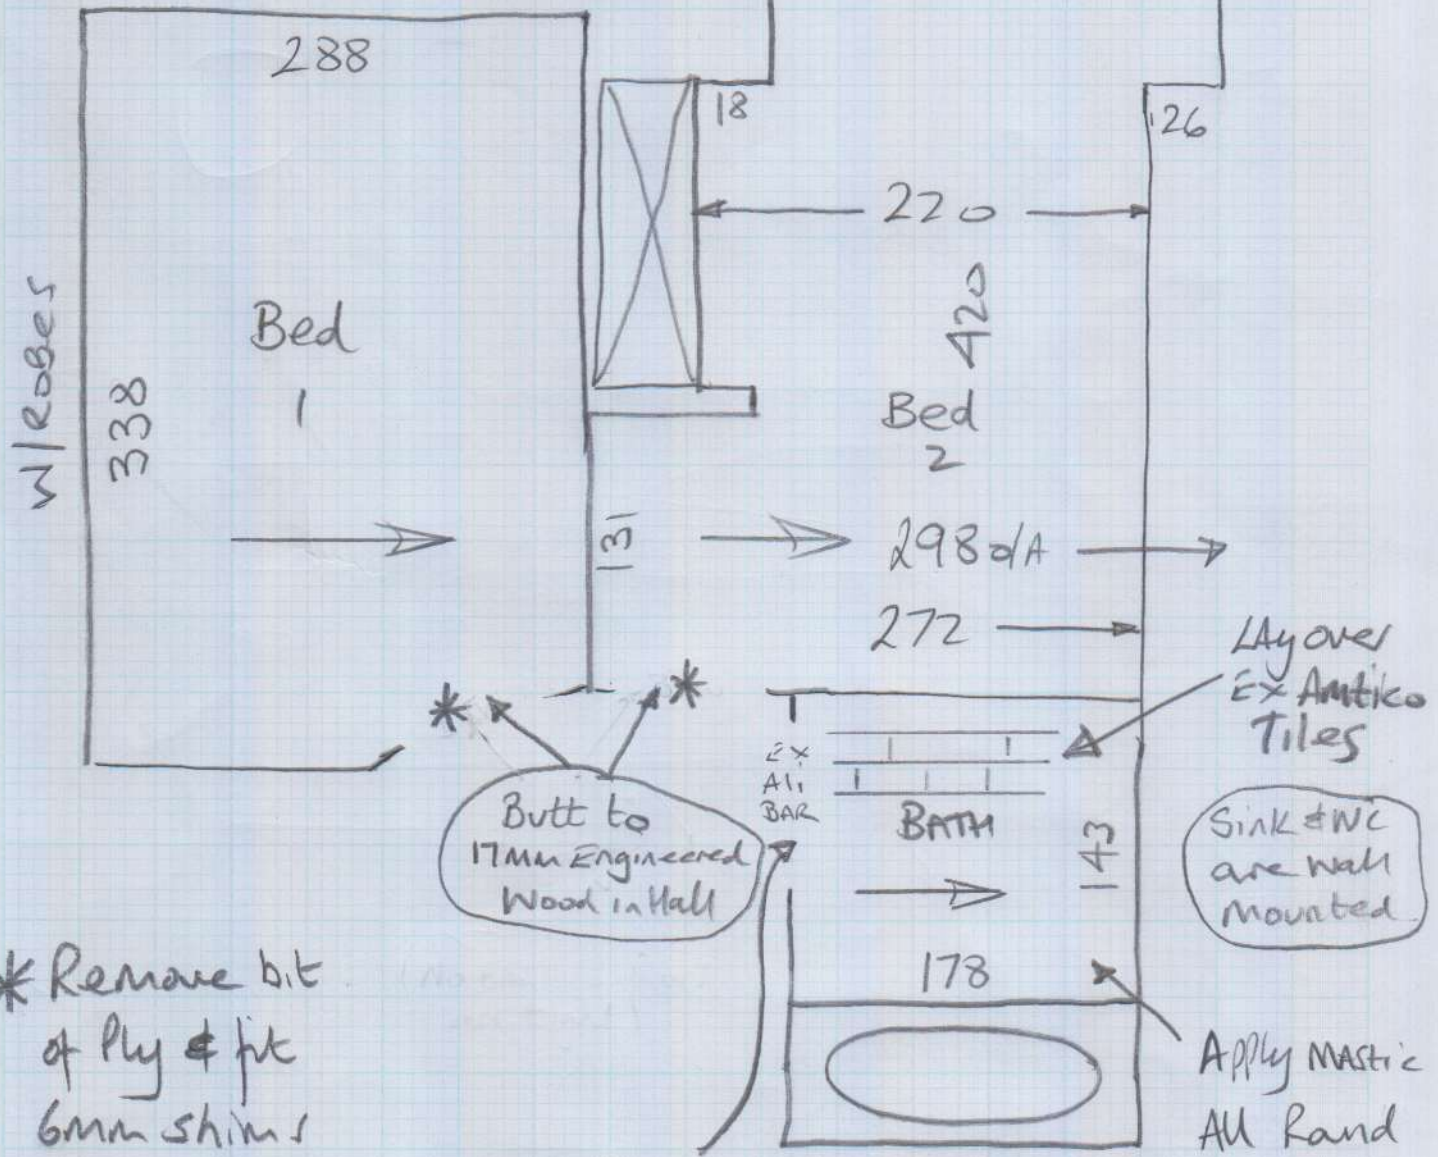 288
18
26
220
420
W/RoBes
338
Bed
1
Bed
2
131
298 o/A
272
*
*
LAy over
Ex Amtico
Tiles
Ex
Ali
BAR
Butt to
17mm Engineered
Wood in Hall
BATH
143
Sink & WC
are Wall
Mounted
178
* Remove bit
of Ply & fit
6mm shims
Apply MAStic
All Rand